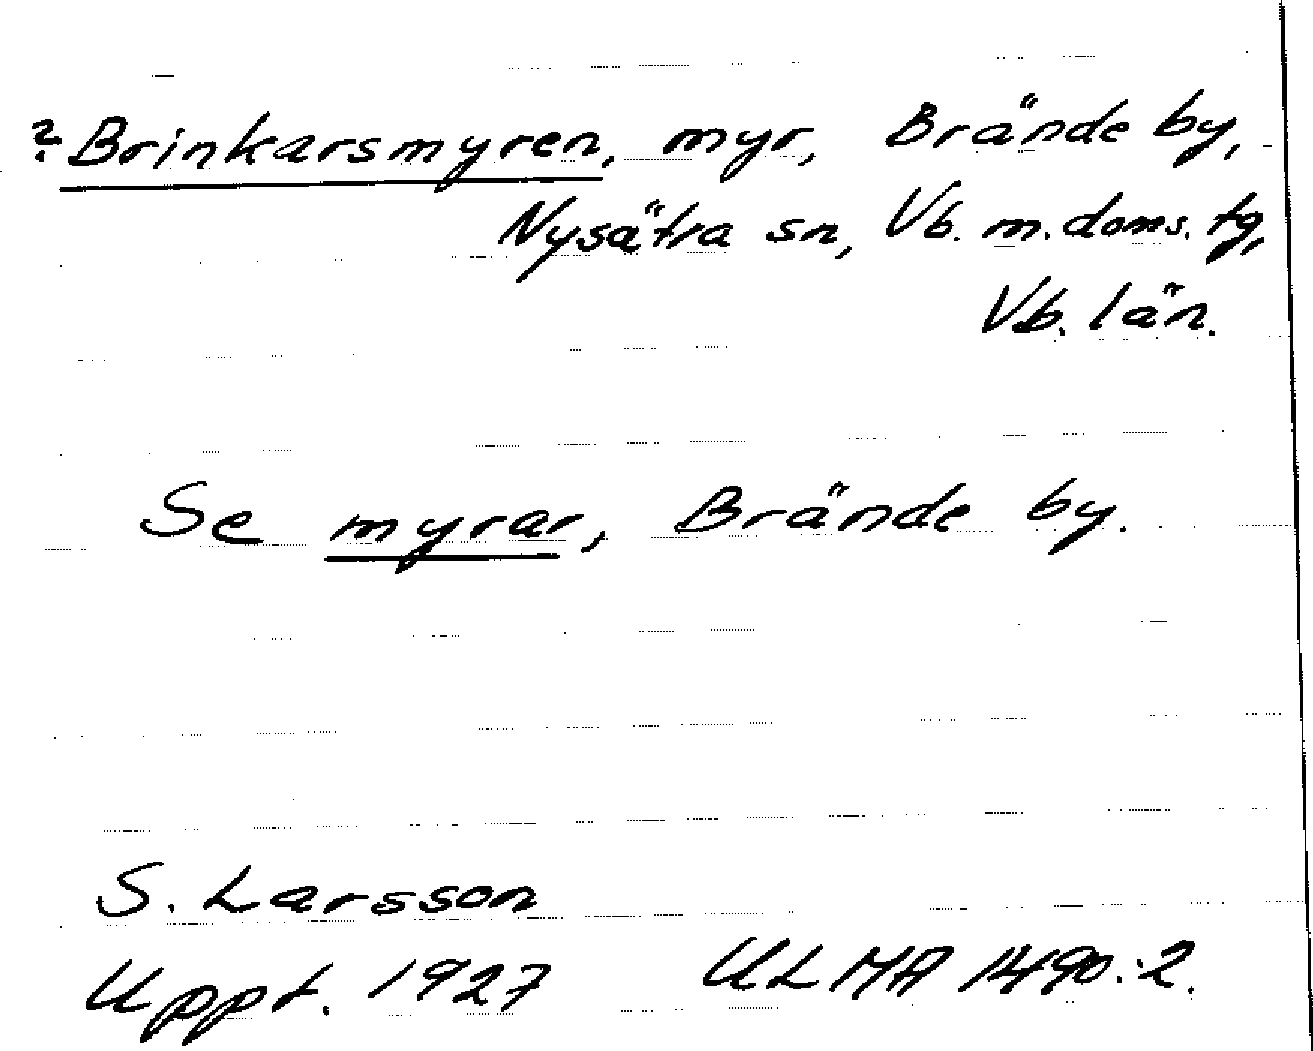 ? Brinkarsmyren, myr, Brände by,
Nysätra sn, Vb. m. doms. tg,
Vb. län.
Se myrar, Brände by.
S. Larsson
Uppt. 1927 ULMA 1490:2.